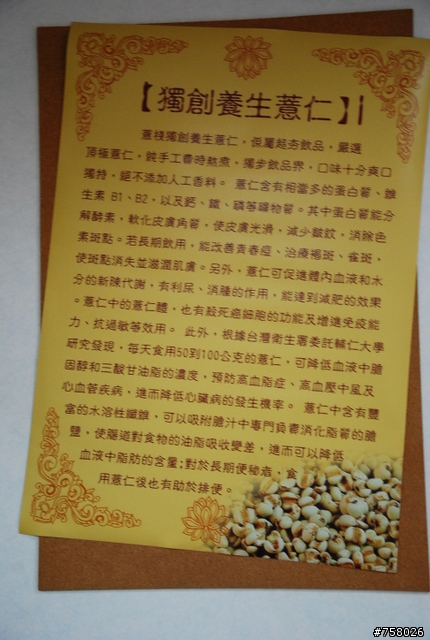 【獨創養生薏仁】
薏棧獨創養生薏仁，保屬超夯飲品，嚴選
頂極薏仁，純手工費時熬煮，獨步飲品界，口味十分爽口
獨特，絕不添加人工香料。薏仁含有相當多的蛋白質、維
生素 B1、B2，以及鈣、鐵、磷等礦物質。其中蛋白質能分
解酵素，軟化皮膚角質，使皮膚光滑，減少皺紋，消除色
素斑點。若長期飲用，能改善青春痘、治療褐斑、雀斑，
使斑點消失並滋潤肌膚。另外，薏仁可促進體內血液和水
分的新陳代謝，有利尿、消腫的作用，能達到減肥的效果
。薏仁中的薏仁醯，也有殺死癌細胞的功能及增進免疫能
力、抗過敏等效用。 此外，根據台灣衛生署委託輔仁大學
研究發現，每天食用50到100公克的薏仁，可降低血液中膽
固醇和三酸甘油脂的濃度，預防高血脂症、高血壓中風及
心血管疾病，進而降低心臟病的發生機率。 薏仁中含有豐
富的水溶性纖維，可以吸附膽汁中專門負責消化脂質的膽
鹽，使腸道對食物的油脂吸收變差，進而可以降低
血液中脂肪的含量;對於長期便秘者，食
用薏仁後也有助於排便。
#758026